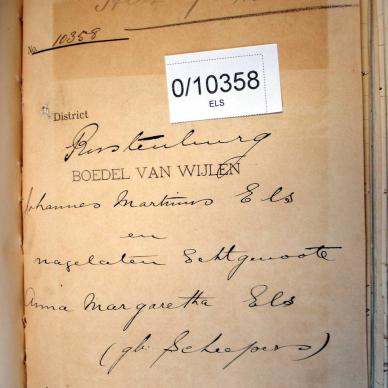 No. 10358
0/10358
ELS
District
Rustenburg
BOEDEL VAN WIJLEN
Johannes Martinus Els
en
nagelaten Echtgenoote
Anna Margaretha Els
(gb: Scheepers)